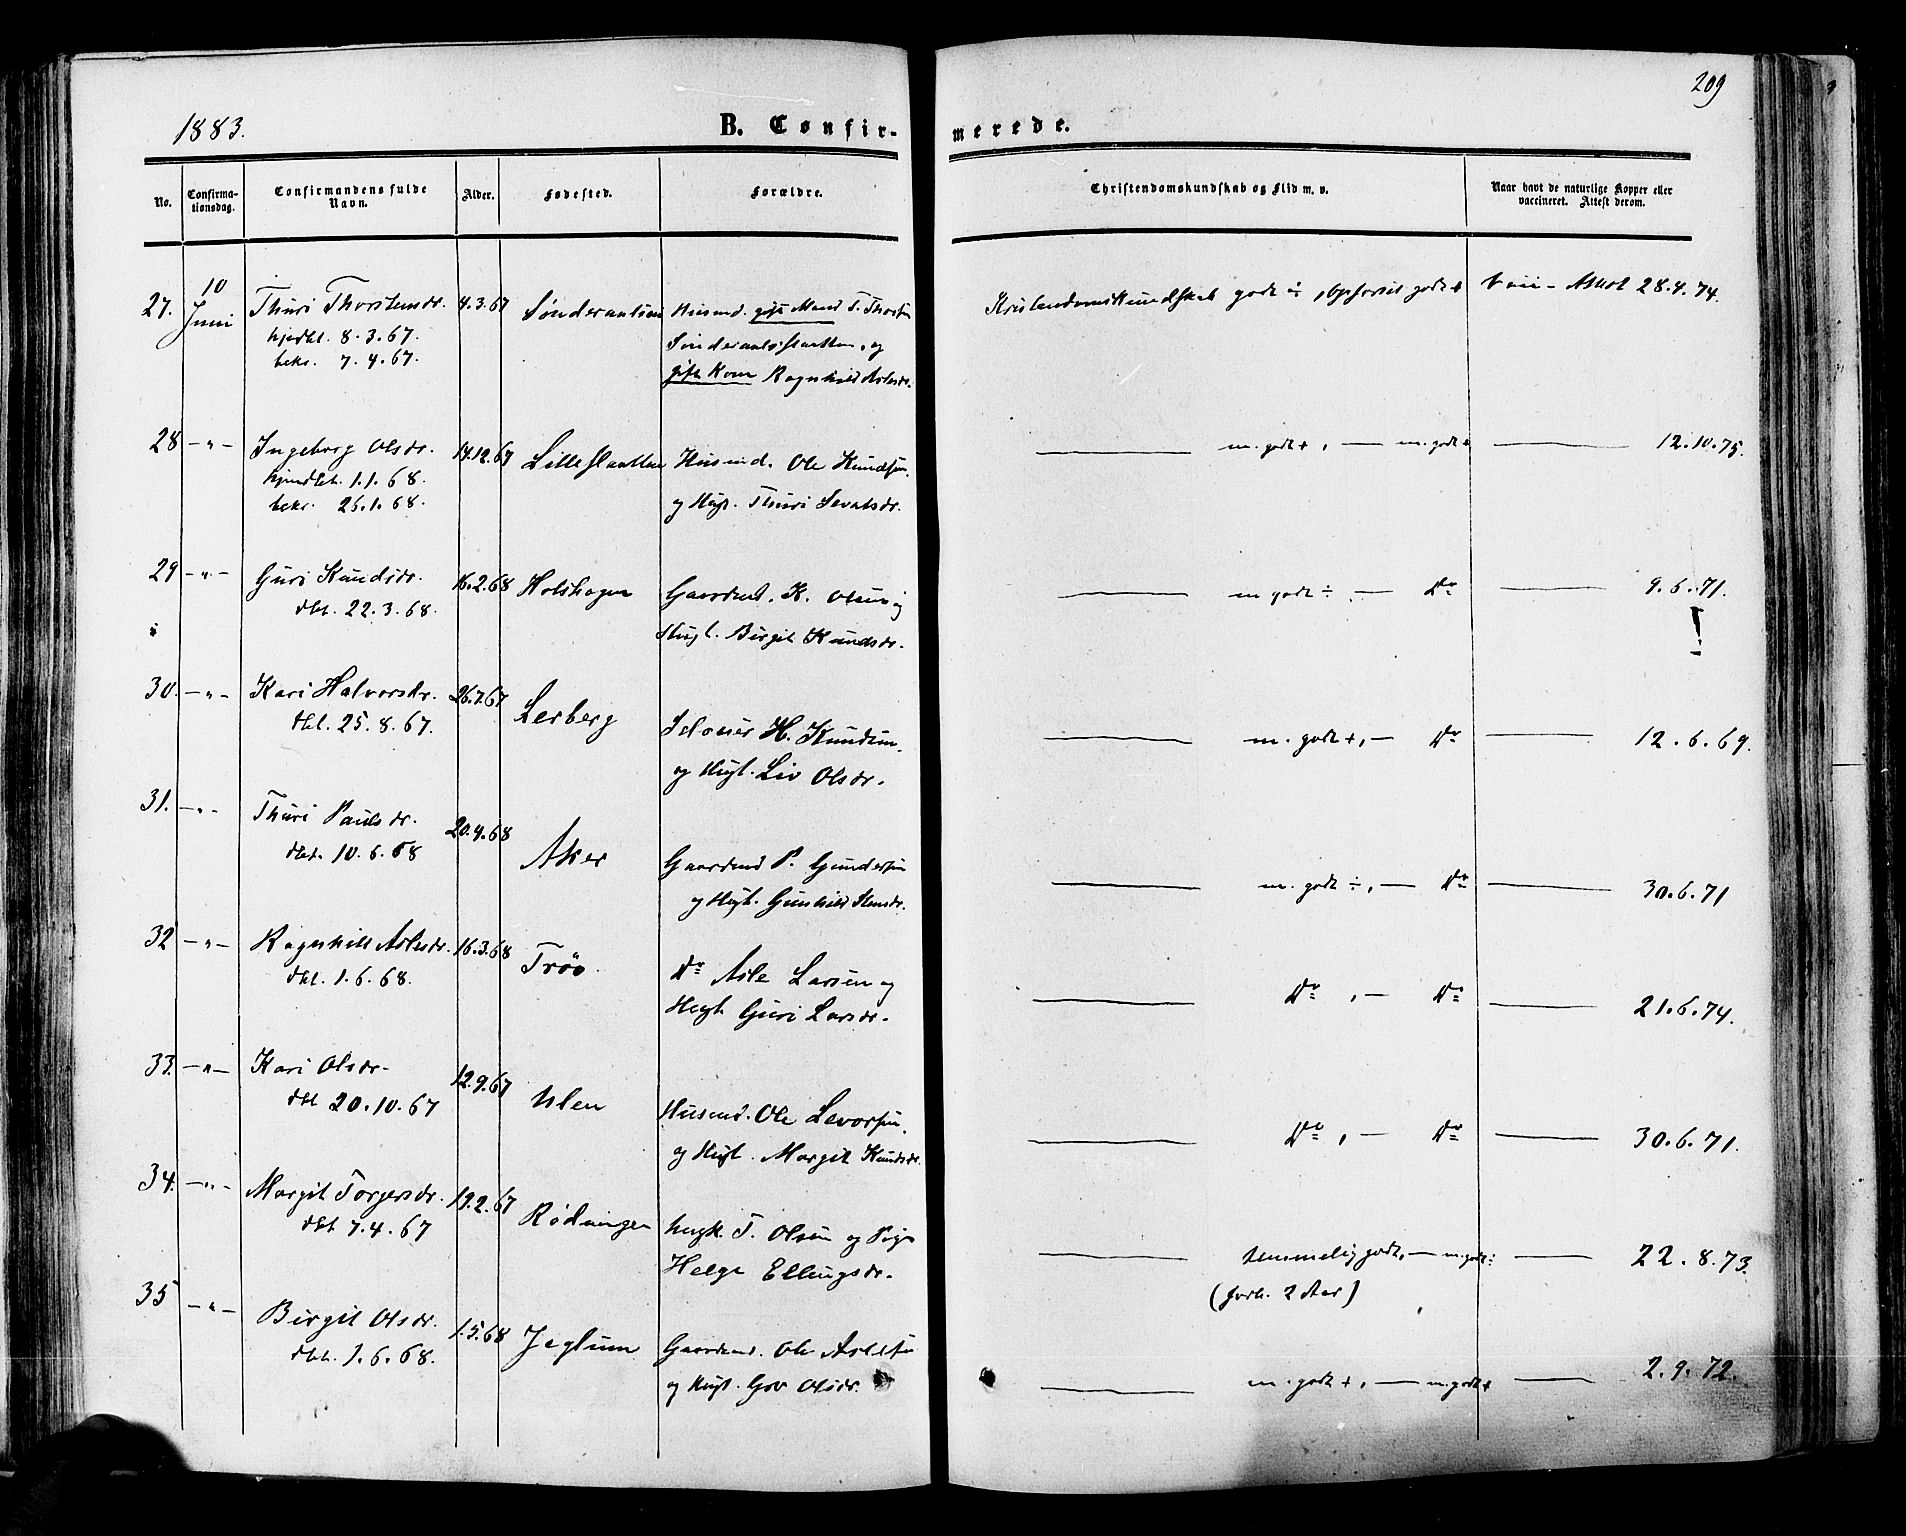 209
1883.
B. Confir-
merede.
No.
Confirma-
tionsdag.
Confirmandens fulde
Navn.
Alder.
Fødested.
Forældre.
Christendomskundskab og Flid m. v.
Naar havt de naturlige Kopper eller
vaccineret. Attest derom.
27. 10 Juni Thuri Thorstensdr. 4.3.67
hjedbt. 8.3.67.
bekr. 7.4.67.
Husmd. gift Mand T. Thorsten
og
gift Kone Ragnhild Aslesdr.
Kristendomskundskab godt ÷, Opførsel godt + Vaii - Attest 28.4.74.
28 -"- Ingeborg Olsdr. 14.12.67 Lilleslaatten Husmd. Ole Knudsen
hjemdbt. 1.1.68.
bekr. 25.1.68. og Hust. Thuri Sevatsdr.
m. godt +, — m. godt + 12.10.75.
29 -"- Guri Knudsdr. 16.2.68 Holshagen Gaardmd. K. Olsen og
dbt. 22.3.68. Hust. Birgit Knudsdr.
m godt ÷ , — Do 9.6.71.
!
30. -"- Kari Halvorsdr. 26.7.67 Lerberg
dbt. 25.8.67. H. Knudsen
og Hust. Liv Olsdr.
m. godt +, — Do 12.6.69.
31. -"- Thuri Paulsdr. 20.4.68 Aker Gaardmd P. Gundersen
dbt. 10.6.68 og Hust. Gunhild
m. godt ÷, — Do 30.6.71
32 -"- Ragnhild Aslesdr. 16.3.68 Trøo Do Asle Larsen og
dbt. 1.6.68. Hust Guri Larsdr.
Do , — Do 21.6.74.
33. -"- Kari Olsdr. 12.9.67 Ulen Husmd. Ole Levorsen
dbt 20.10.67 og Hust. Margit Knudsdr.
Do , — Do 30.6.71.
34. -"- Margit Torgersdr. 19.2.67 Rødningen Ungk. T. Olsen og Pige
dbt 7.4.67 Helge Ellingsdr.
temmelig godt, — m. godt ÷ 22.8.73.
(forb. 2 Aar)
35 -"- Birgit Olsdr. 1.5.68 Jeglum Gaardmd. Ole Aslesen
dbt. 1.6.68. og Hust. Gro Olsdr.
m. godt +, — m. godt + 2.9.72.